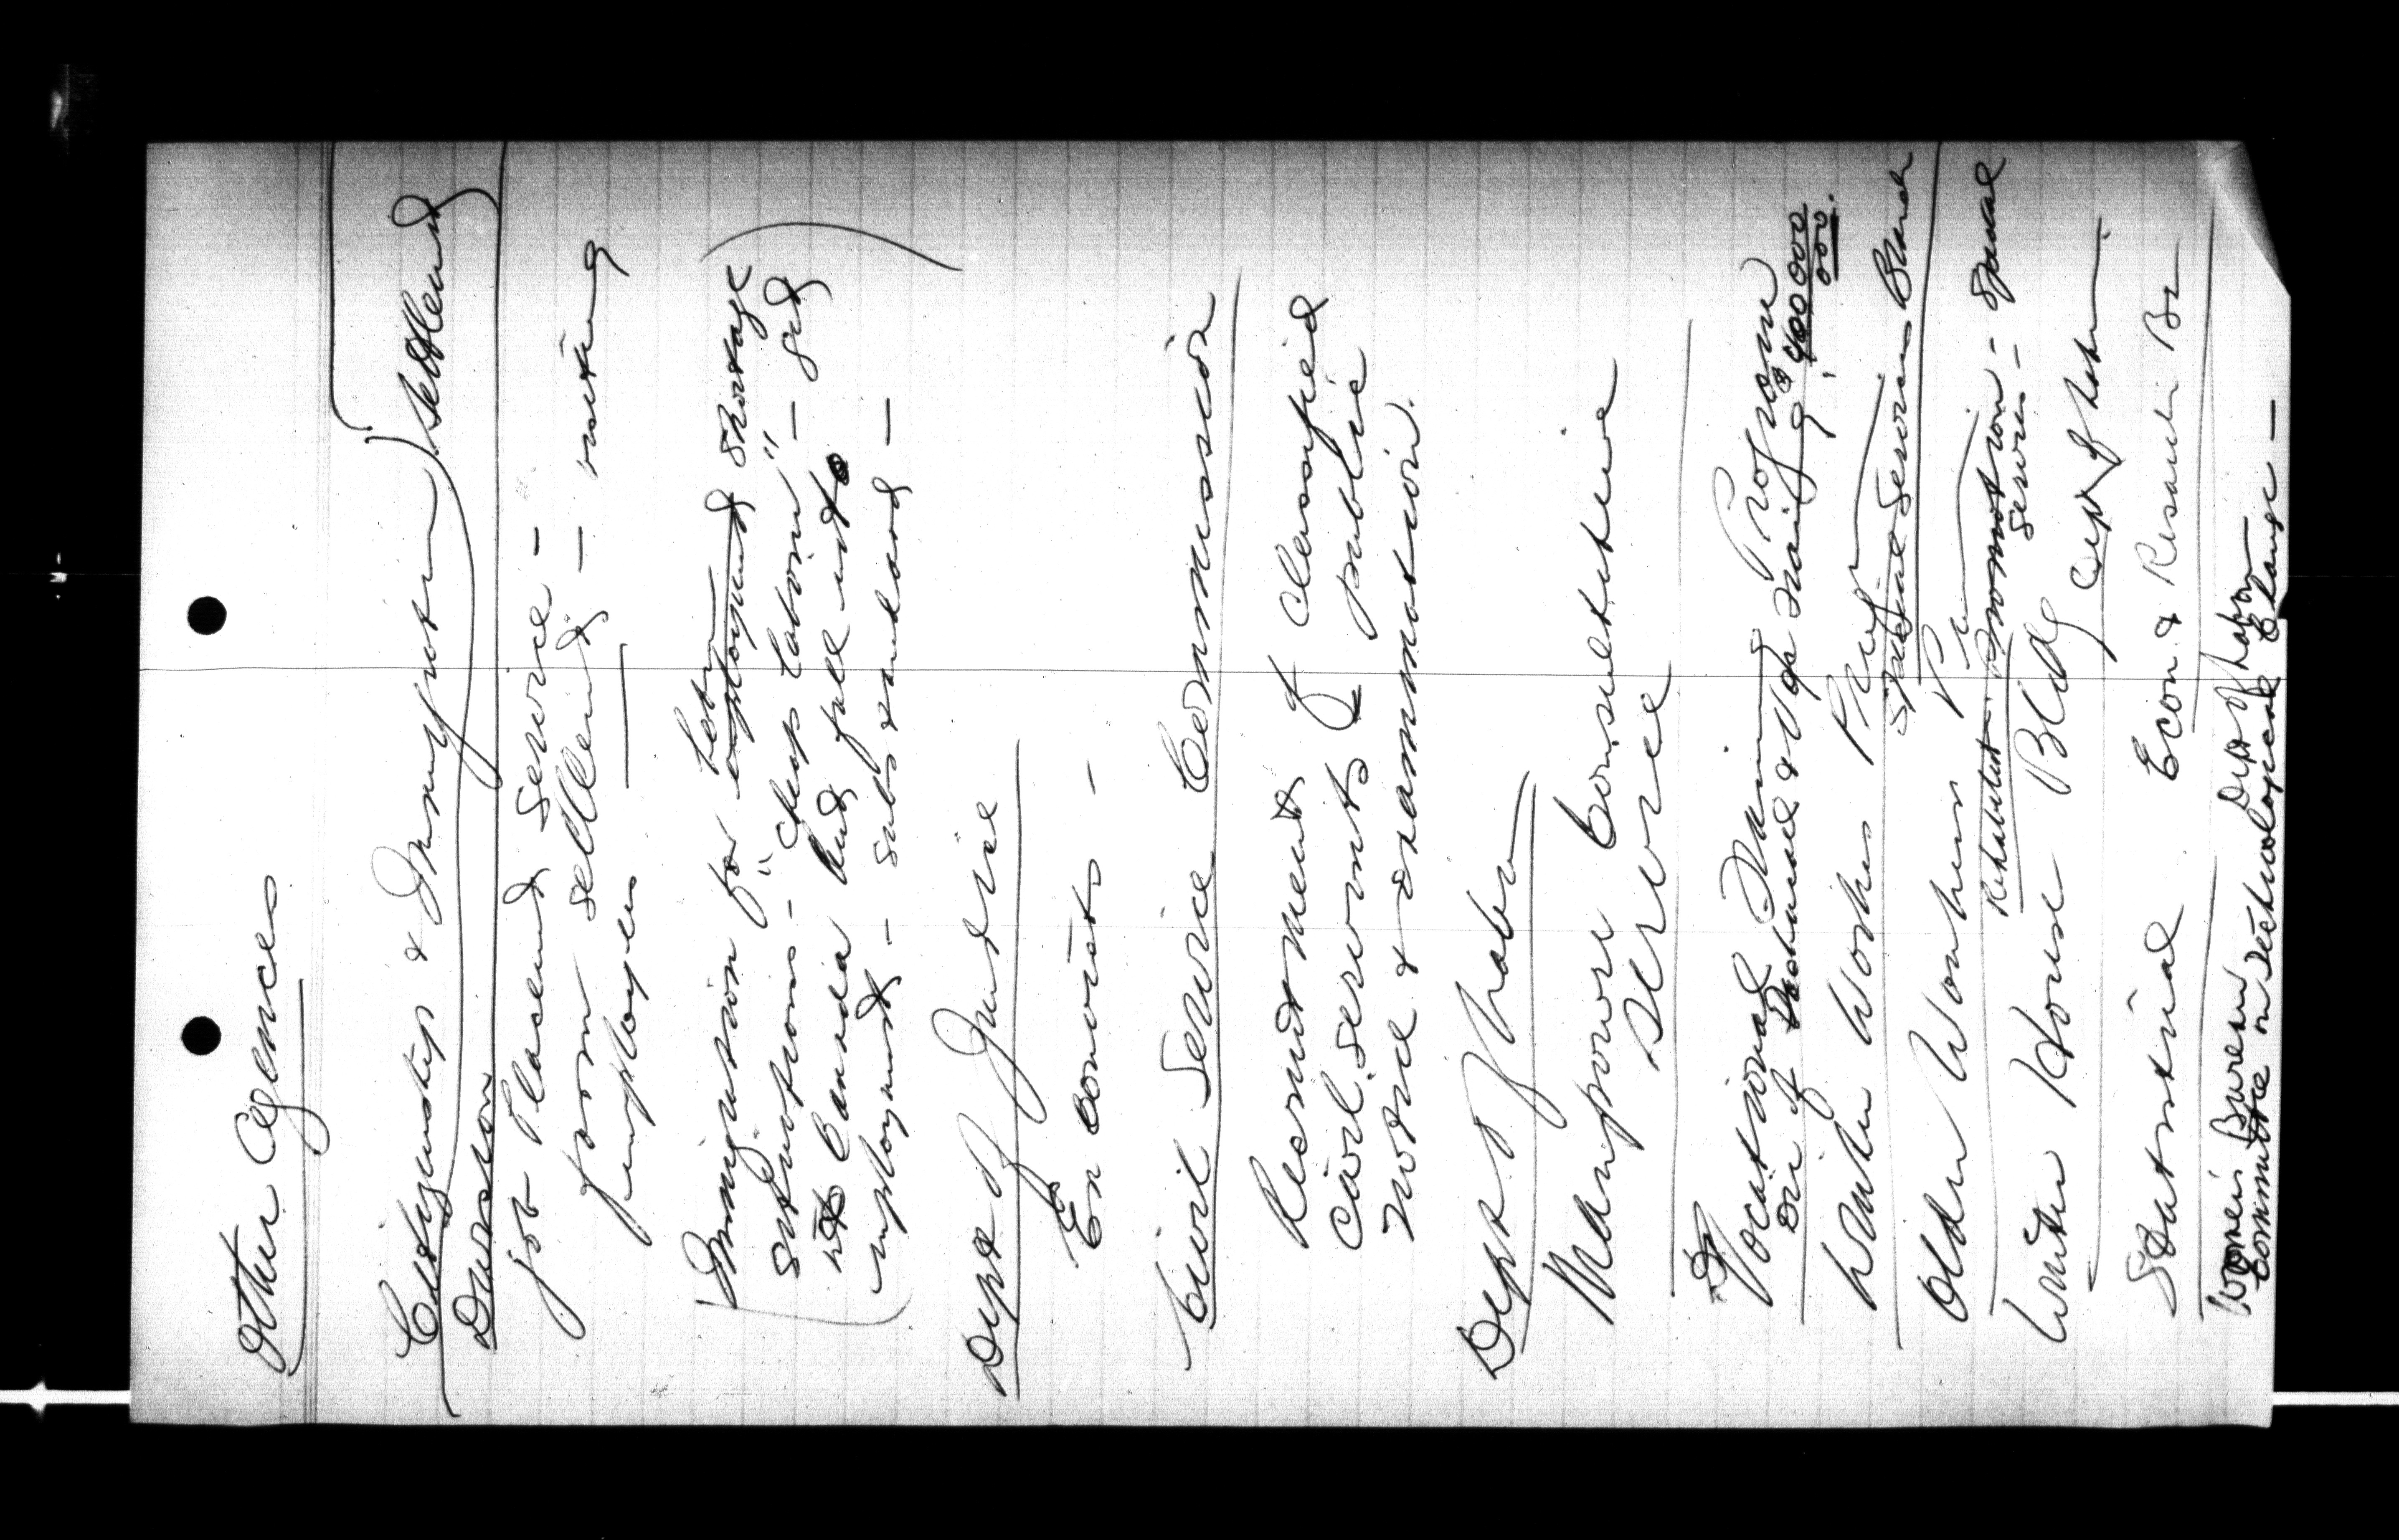 Other Agencies
Citizenship & Immigration) Settlement
Division
job Placement service -
farm settlement - visiting
employers
Immigration for labour employment shortage
situations - "cheap labour" - get
into Canada and fall into
employment - substandard -
Dept of Justice
Ex convicts -
Civil Service Commission
Recruitment of classified
civil servants of public
notice & examination.
Dept of Labour
Manpower Consultative
Service
Vocational Training Program
Div of Technical & Voc Training $400 000
000.
Winter Works
Special Services Branch
Older Workers
Rehabilitation Promotion - Special
Services -
Winter House Bldg Dept of Labour
Statistical Econ & Research Br
Women's Bureau Dept of Labour
Committee on Technological Change -